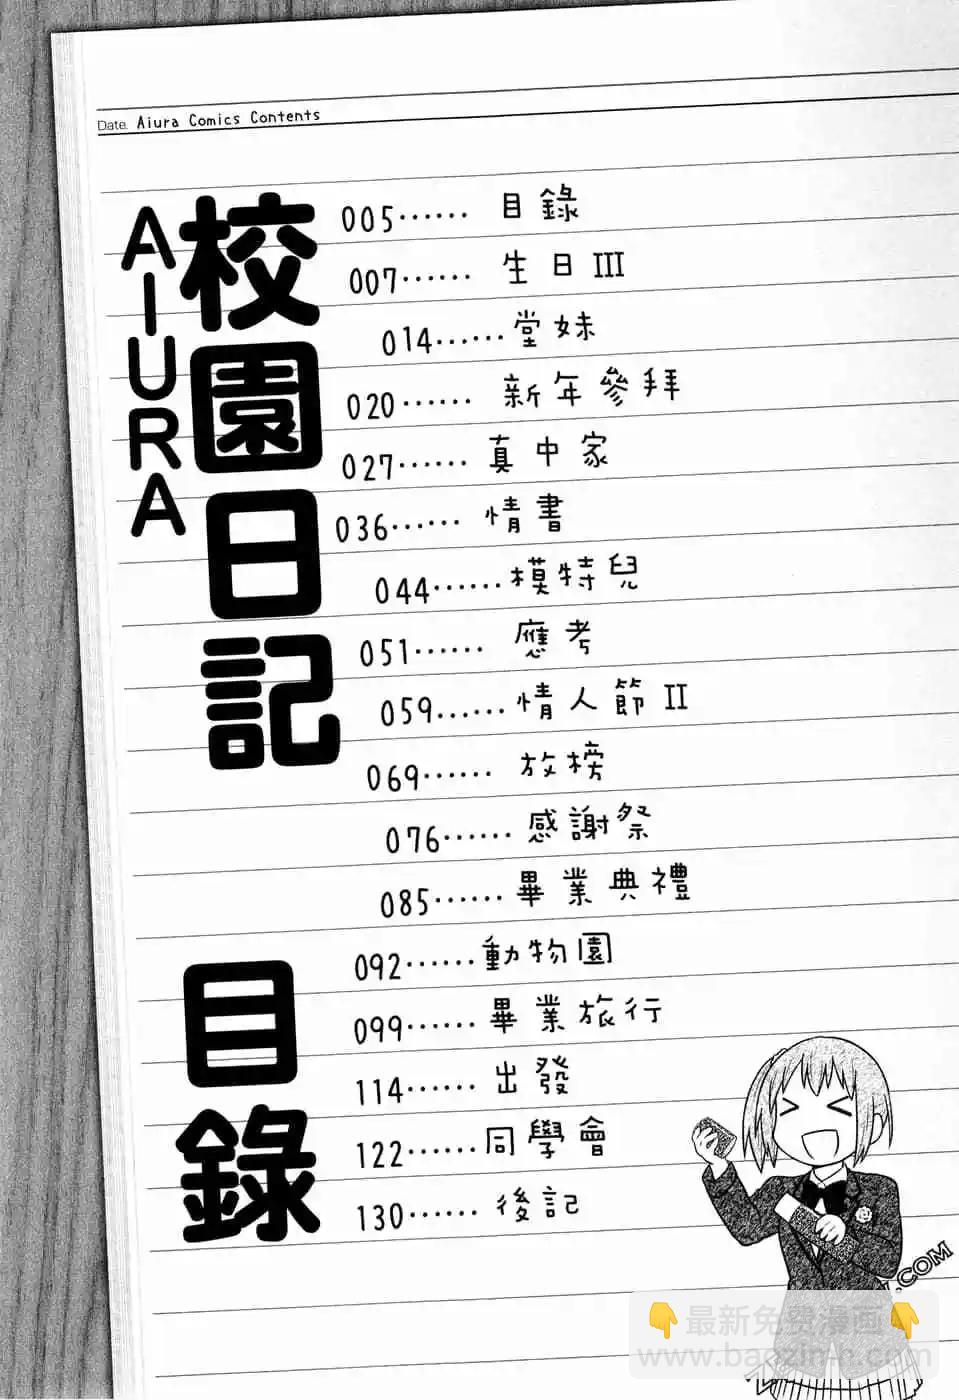 Date. Aiura Comics Contents
AIURA
校園日記
目錄
005······ 目錄
007······ 生日III
014······堂妹
020······ 新年參拜
027······ 真中家
036······ 情書
044······模特兒
051······ 應考
059......情人節II
069······ 放榜
076······感謝祭
085······畢業典禮
092······動物園
099······畢業旅行
114······ 出發
122······同學會
130······ 後記
.COM
👇最新免費漫画👇
www.baozimh.com